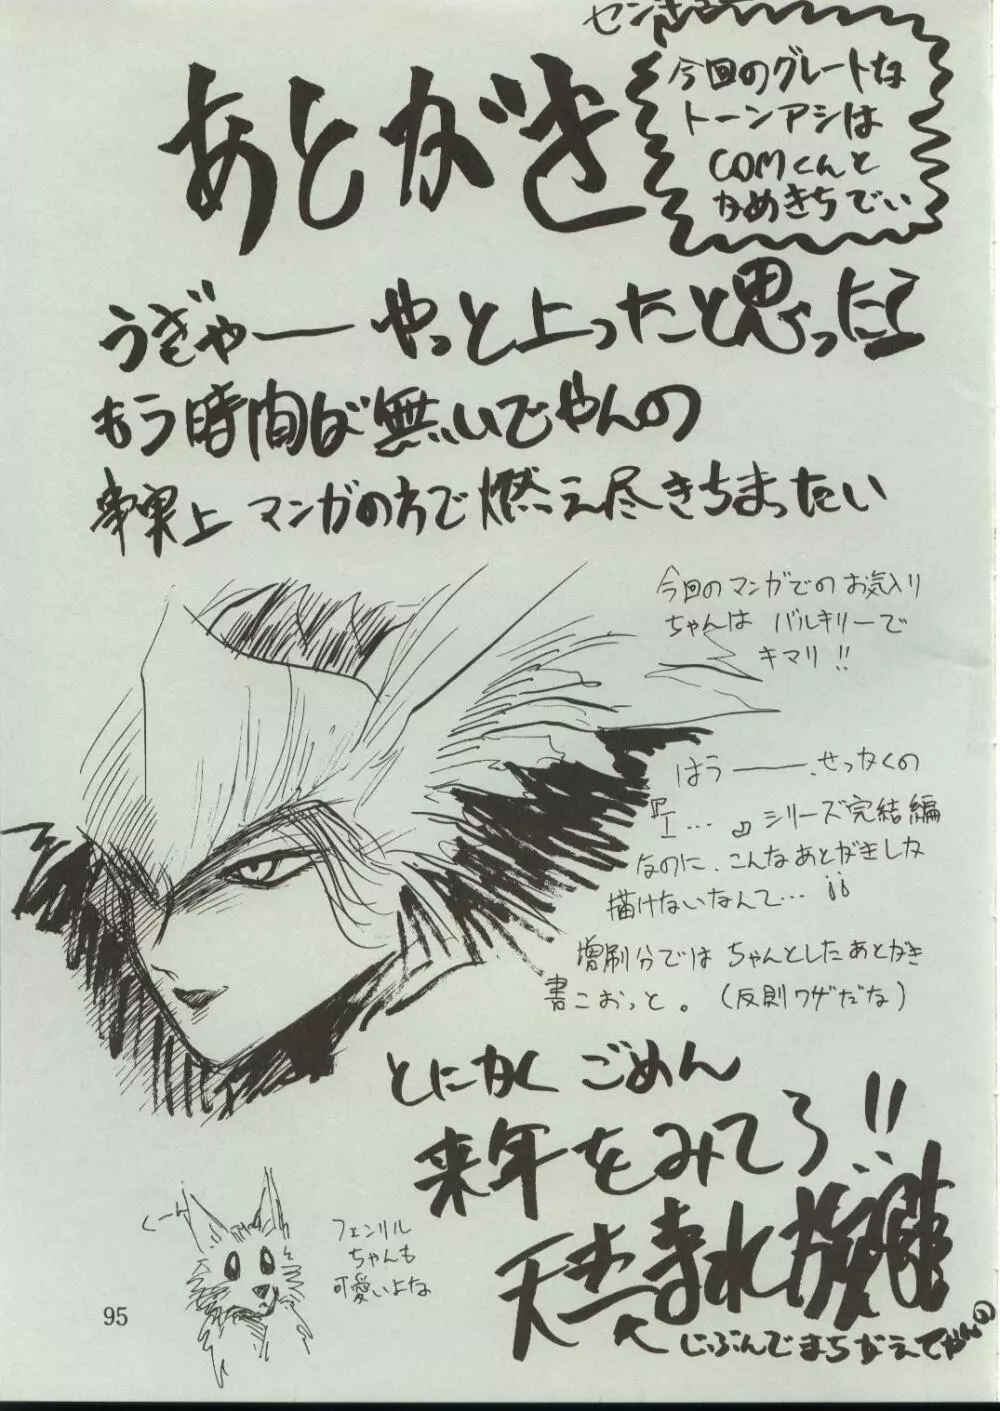 あとがき
今回のグレートな
トーンアシは
COMくんと
かめきちでぃ
うぎゃー やっと上ったと思ったら
もう時間が無いでやんの
事実上 マンガの方で燃え尽きちまったい
今回のマンガでのお気入り
ちゃんは バルキリーで
キマリ!!
はうー、せっかくの
シリーズ完結編
なのに、こんなあとがきしか
描けないなんて…
増刷分では ちゃんとしたあとがき
書こおっと。(反則ワザだな)
とにかく ごめん
来年をみてろ!!
じぶんでまちがえてやんの
くーん
フェンリル
ちゃんも
可愛いよな
95